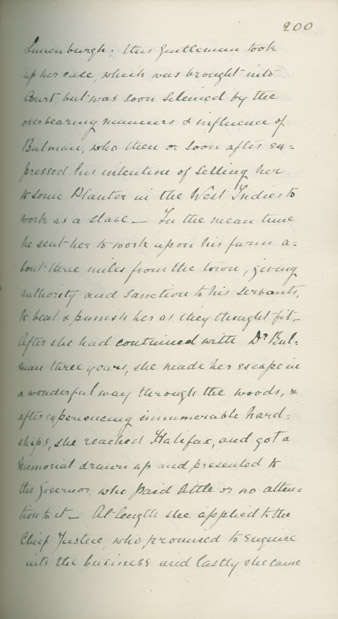 200
Lunenburgh; this Gentleman took
up her case, which was brought into
Court but was soon silenced by the
overbearing manners & influence of
Bulman, who then or soon after ex-
pressed his intention of selling her
to some Planter in the West Indies to
work as a slave — In the mean time
he sent her to work upon his farm a-
bout three miles from the town, giving
authority and sanction to his servants,
to beat & punish her as they thought fit —
After she had continued with Dr Bul-
man three years, she made her escape in
a wonderful way through the woods, &
after experiencing innumerable hard-
ships, she reached Halefax, and got a
memorial drawn up and presented to
the Governor, who paid little or no atten-
tion to it — At length she applied to the
Chief Justice, who promised to enquire
into the business and lastly she came